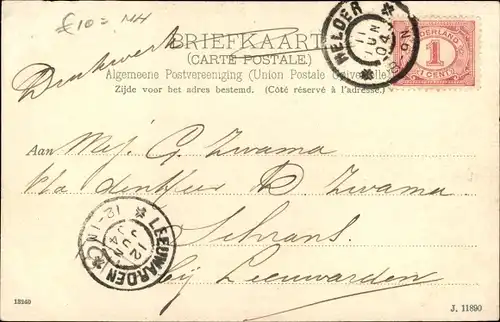 £10= NH
Drukwerk
BRIEFKAART
(CARTE POSTALE.)
Algemeene Postvereeniging (Union Postale Universelle)
Zijde voor het adres bestemd. (Côté réservé à l'adresse.)
HELDER
11 JUN 04
NEDERLAND
1
1 CENT
Aan Mej. G. Zwama
p/a den Heer R Zwama
Schrans
bij Leeuwarden
LEEUWARDEN
12 JUN 04
12-1N
13240
J. 11890